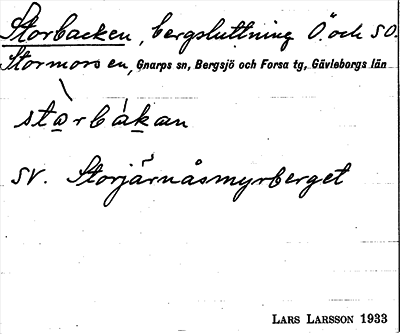 Storbacken, bergsluttning Ö. och SO.
Stormoss en, Gnarps sn, Bergsjö och Forsa tg, Gävleborgs län
stòrbákan
SV. Storjärnåsmyrberget
LARS LARSSON 1933